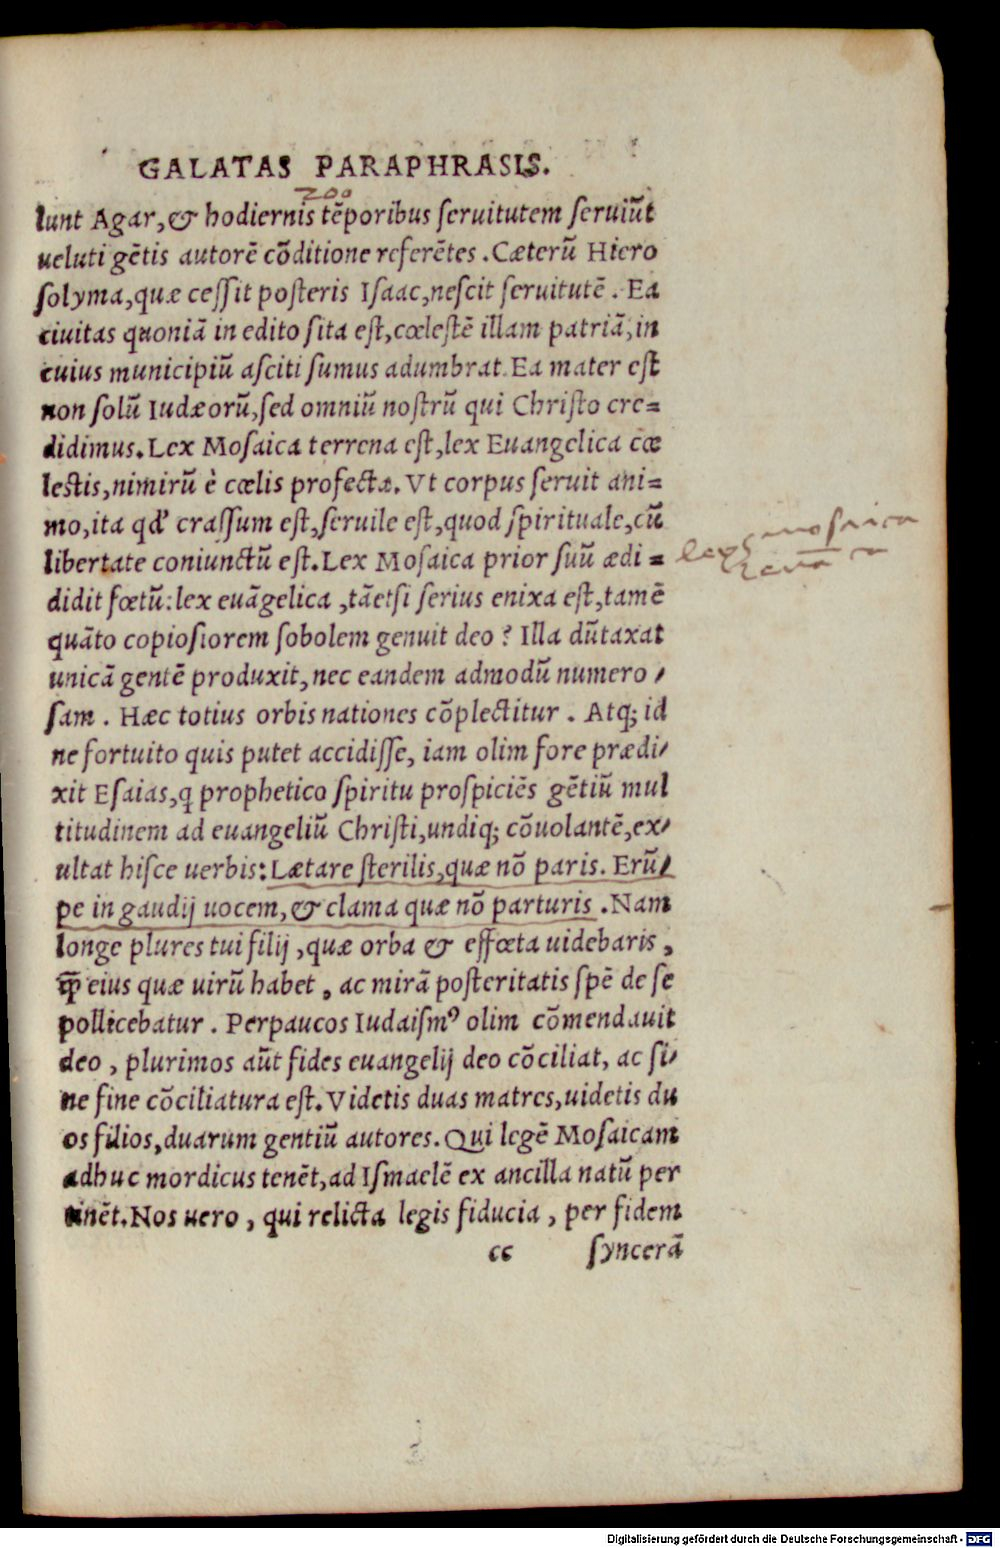 GALATAS PARAPHRASIS.
200
lunt Agar, & hodiernis tẽporibus ſeruitutem ſeruiũt
ueluti gẽtis autorẽ cõditione referẽtes. Cæterũ Hiero
ſolyma, quæ ceſſit poſteris Iſaac, neſcit ſeruitutẽ. Ea
ciuitas quoniã in edito ſita eſt, cœleſtẽ illam patriã, in
cuius municipiũ aſciti ſumus adumbrat. Ea mater eſt
non ſolũ Iudæorũ, ſed omniũ noſtrũ qui Chriſto cre=
didimus. Lex Moſaica terrena eſt, lex Euangelica cœ
leſtis, nimirũ è cœlis profecta. Vt corpus ſeruit ani=
mo, ita qđ craſſum eſt, ſeruile eſt, quod ſpirituale, cũ
libertate coniunctũ eſt. Lex Moſaica prior ſuũ ædi=
didit fœtũ: lex euãgelica, tãetſi ſerius enixa eſt, tamẽ
quãto copioſiorem ſobolem genuit deo? Illa dũtaxat
unicã gentẽ produxit, nec eandem admodũ numero/
ſam. Hæc totius orbis nationes cõplectitur. Atq; id
ne fortuito quis putet accidiſſe, iam olim fore prædi/
xit Eſaias, q prophetico ſpiritu proſpiciẽs gẽtiũ mul
titudinem ad euangeliũ Chriſti, undiq; cõuolantẽ, ex/
ultat hiſce uerbis: Lætare ſterilis, quæ nõ paris. Erũ/
pe in gaudij uocem, & clama quæ nõ parturis. Nam
longe plures tui filij, quæ orba & effœta uidebaris,
q̃ eius quæ uirũ habet, ac mirã poſteritatis ſpẽ de ſe
pollicebatur. Perpaucos Iudaiſmꝰ olim cõmendauit
deo, plurimos aũt fides euangelij deo cõciliat, ac ſi/
ne fine cõciliatura eſt. Videtis duas matres, uidetis du
os filios, duarum gentiũ autores. Qui legẽ Moſaicam
adhuc mordicus tenẽt, ad Iſmaelẽ ex ancilla natũ per
tinẽt. Nos uero, qui relicta legis fiducia, per fidem
cc ſyncerã
lex moſaica
Digitalisierung gefördert durch die Deutsche Forschungsgemeinschaft - DFG